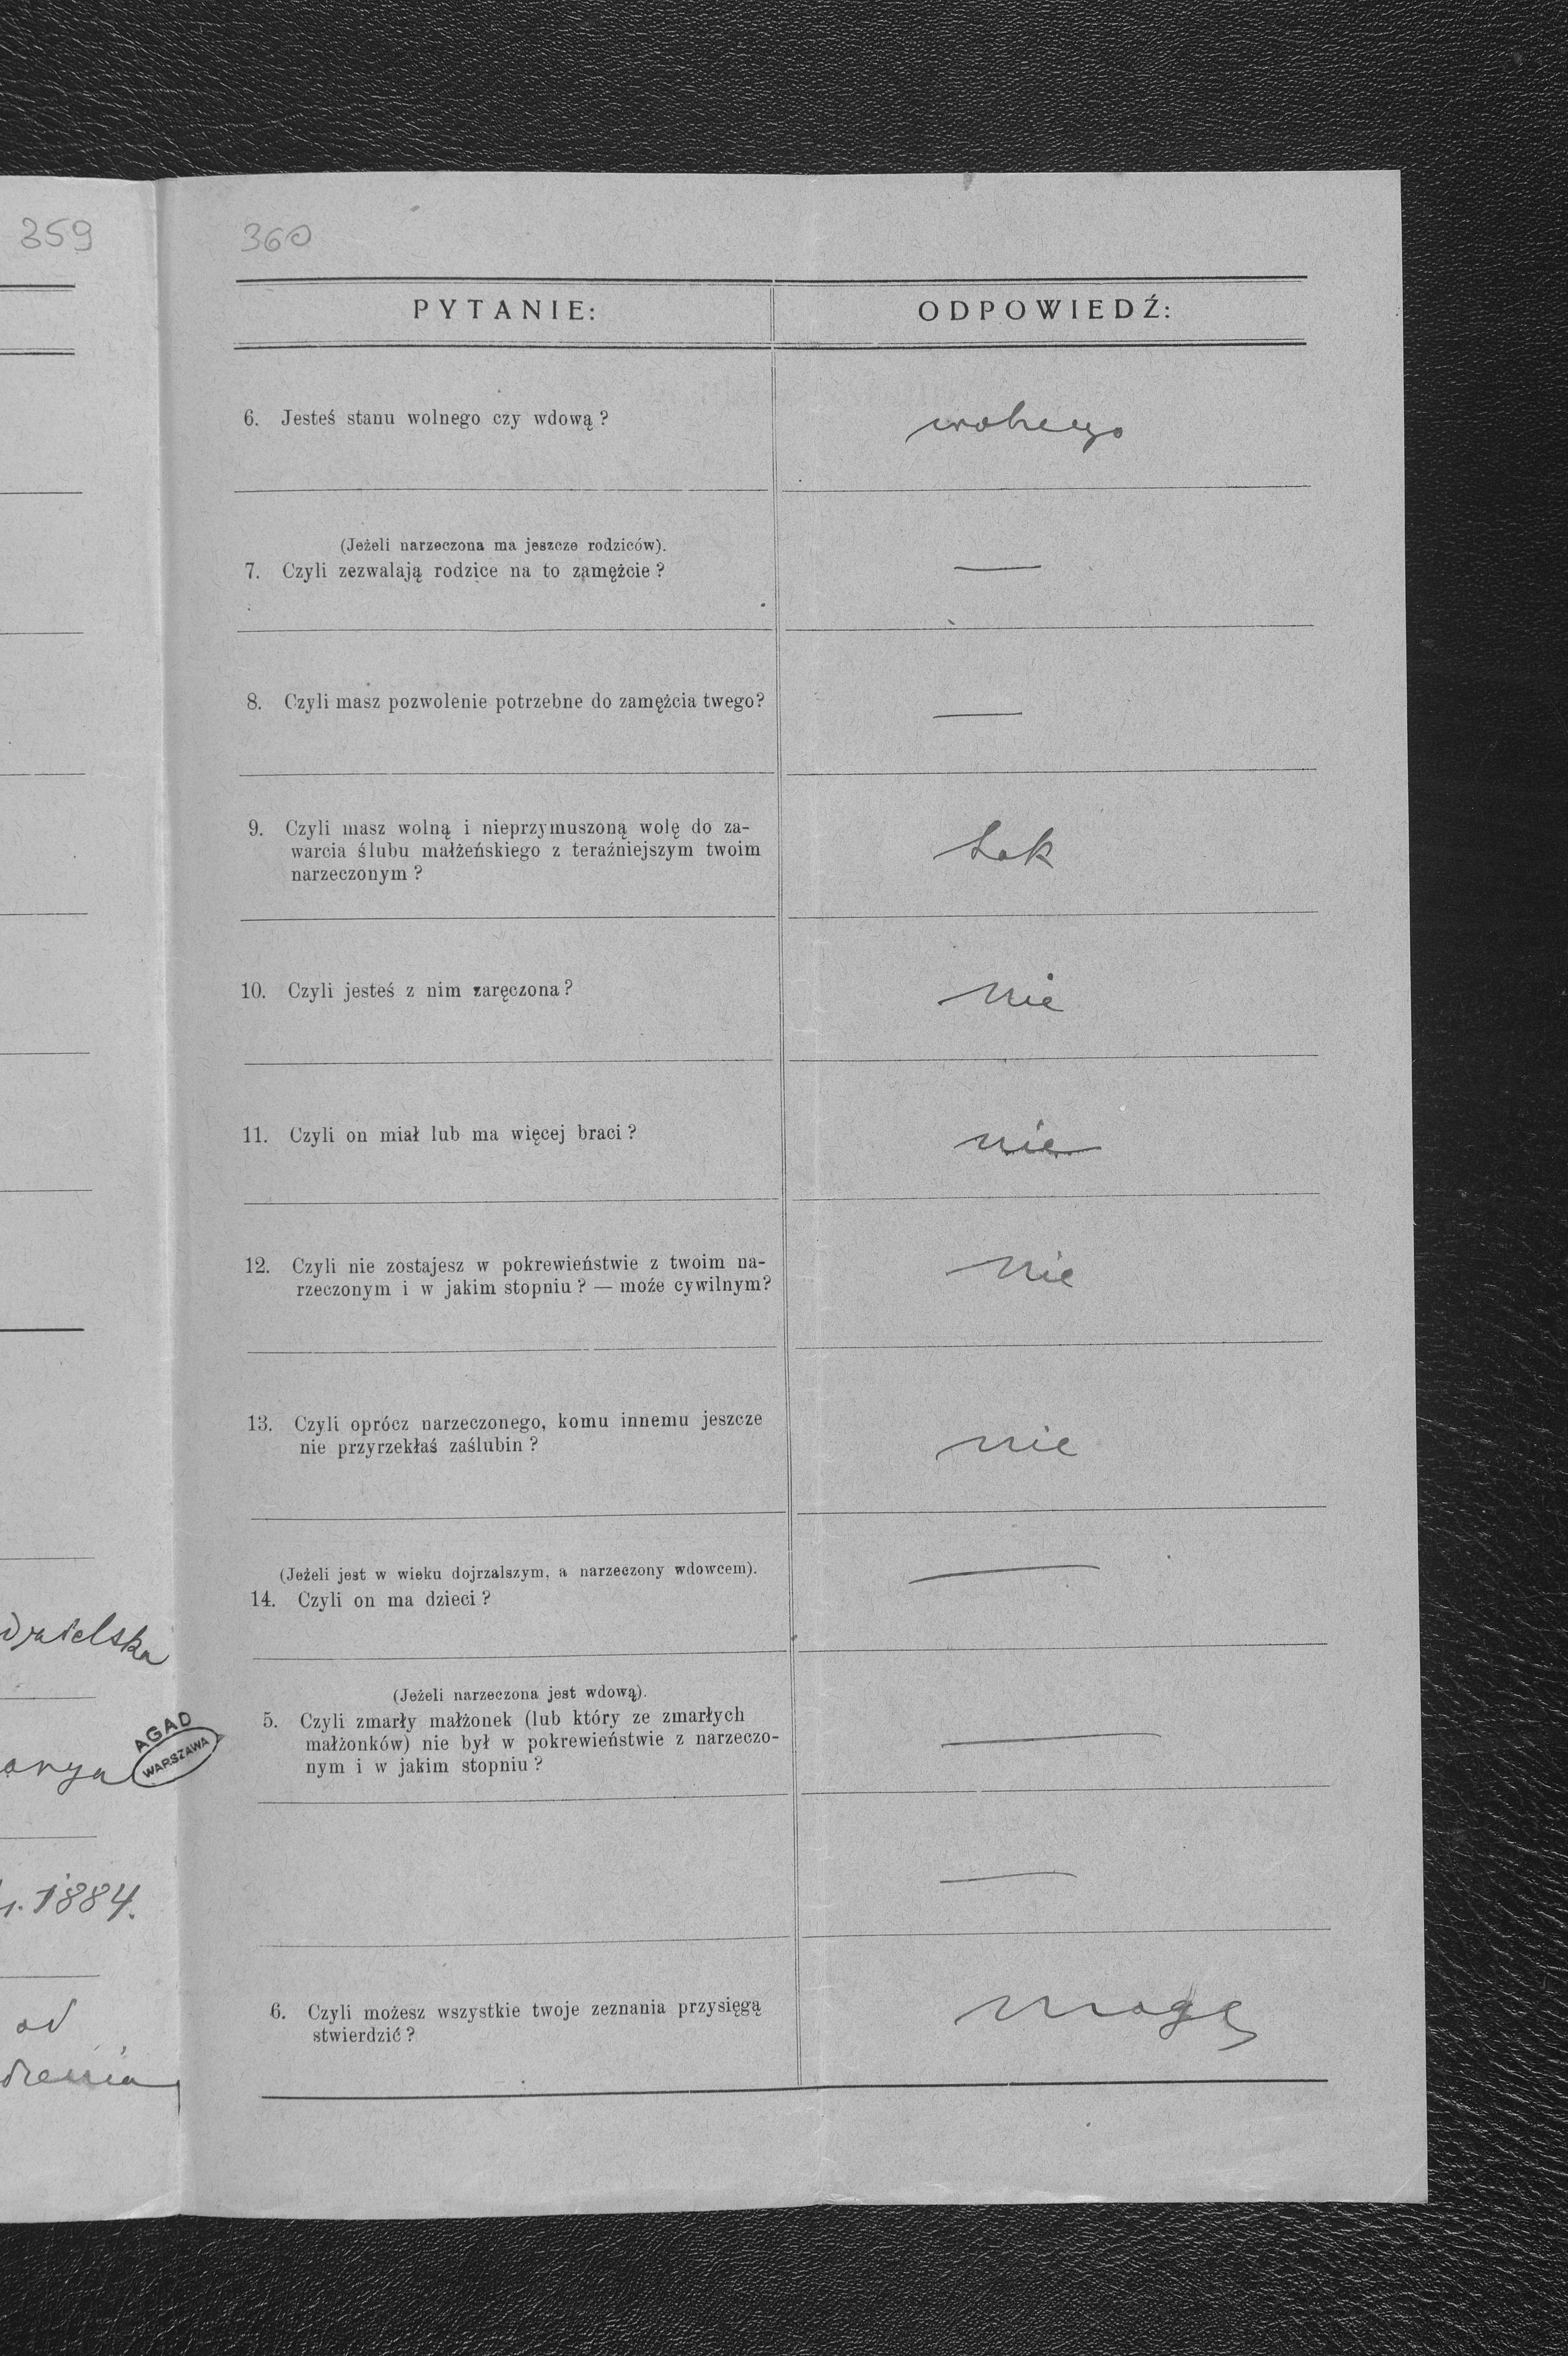 359
drzielska
anya
r. 1884.
od
dzenia
AGAD
WARSZAWA
360
PYTANIE:
ODPOWIEDŹ:
6. Jesteś stanu wolnego czy wdową?
wolnego
(Jeżeli narzeczona ma jeszcze rodziców).
7. Czyli zezwalają rodzice na to zamężcie?
—
8. Czyli masz pozwolenie potrzebne do zamężcia twego?
—
9. Czyli masz wolną i nieprzymuszoną wolę do za-
warcia ślubu małżeńskiego z teraźniejszym twoim
narzeczonym?
tak
10. Czyli jesteś z nim zaręczona?
nie
11. Czyli on miał lub ma więcej braci?
nie
12. Czyli nie zostajesz w pokrewieństwie z twoim na-
rzeczonym i w jakim stopniu? — może cywilnym?
nie
13. Czyli oprócz narzeczonego, komu innemu jeszcze
nie przyrzekłaś zaślubin?
nie
(Jeżeli jest w wieku dojrzalszym, a narzeczony wdowcem).
14. Czyli on ma dzieci?
—
(Jeżeli narzeczona jest wdową).
5. Czyli zmarły małżonek (lub który ze zmarłych
małżonków) nie był w pokrewieństwie z narzeczo-
nym i w jakim stopniu?
—
—
6. Czyli możesz wszystkie twoje zeznania przysięgą
stwierdzić?
mogę